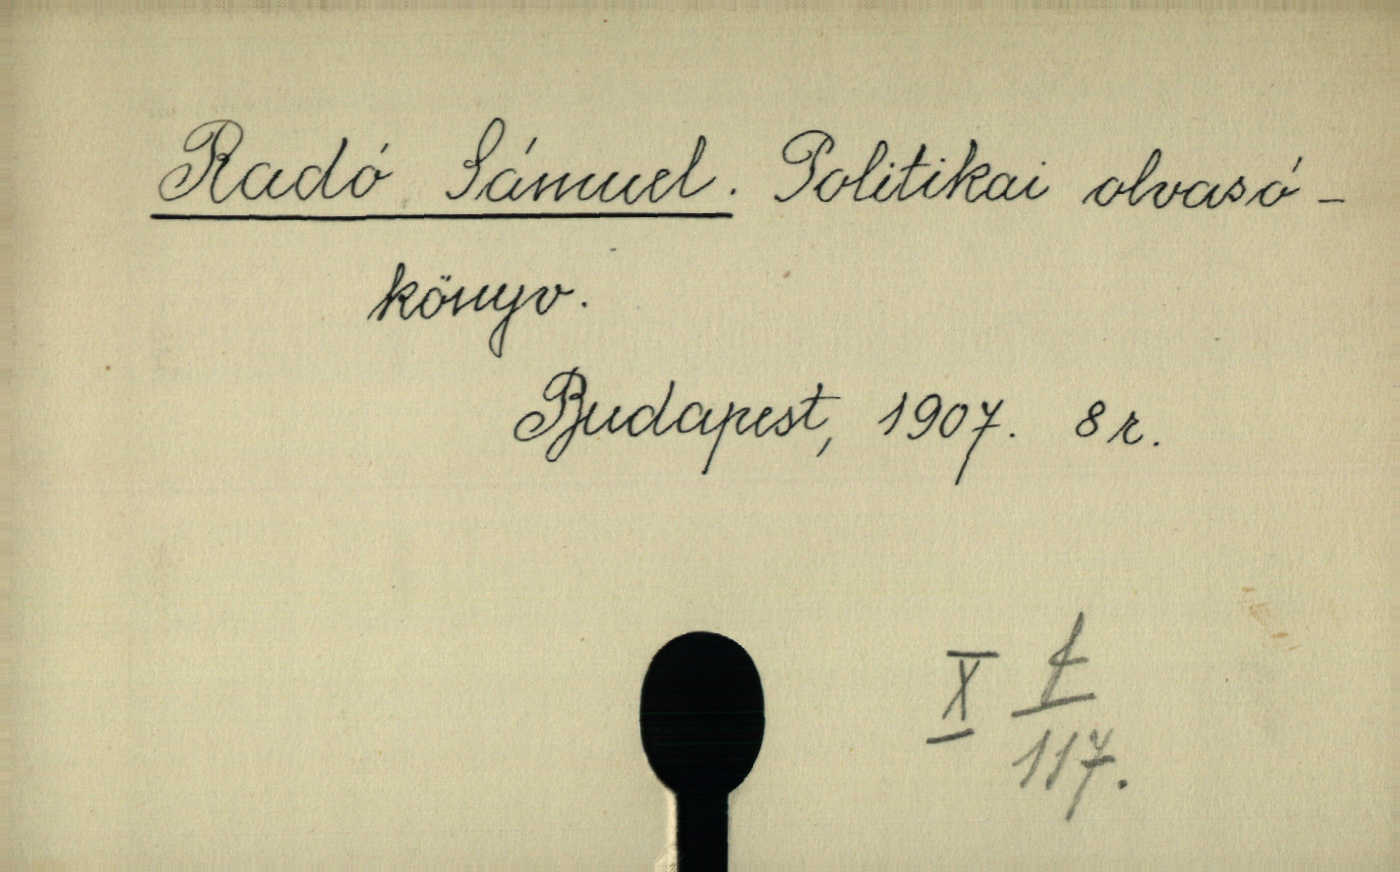 Radó Sámuel. Politikai olvasó-
könyv.
Budapest, 1907. 8 r.
X f
117.